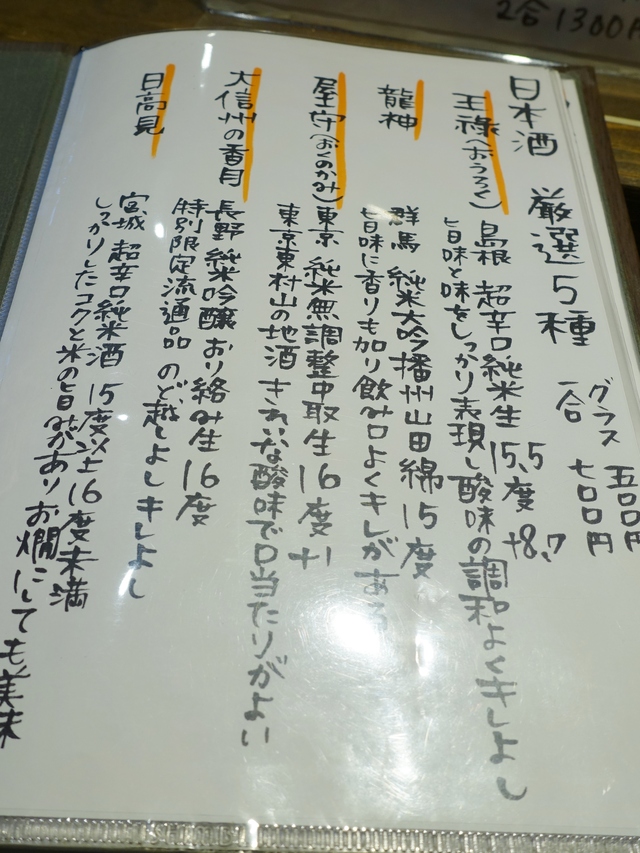 2合1300円
日本酒 厳選5種
グラス 五〇〇円
一合 七〇〇円
王祿(おうろく)
島根 超辛口純米生 15.5度 +8.7
旨味と味をしっかり表現し酸味の調和よくキレよし
龍神
群馬 純米大吟播州山田綿 15度
旨味に香りも加り飲み口よくキレがある
屋守(おくのかみ)
東京 純米無調整中取生 16度 +1
東京東村山の地酒 きれいな酸味で口当たりがよい
大信州の香月
長野 純米吟醸 おり絡み生 16度
特別限定流通品 のど越しよしキレよし
日高見
宮城 超辛口純米酒 15度以上16度未満
しっかりしたコクと米の旨みがありお燗にしても美味